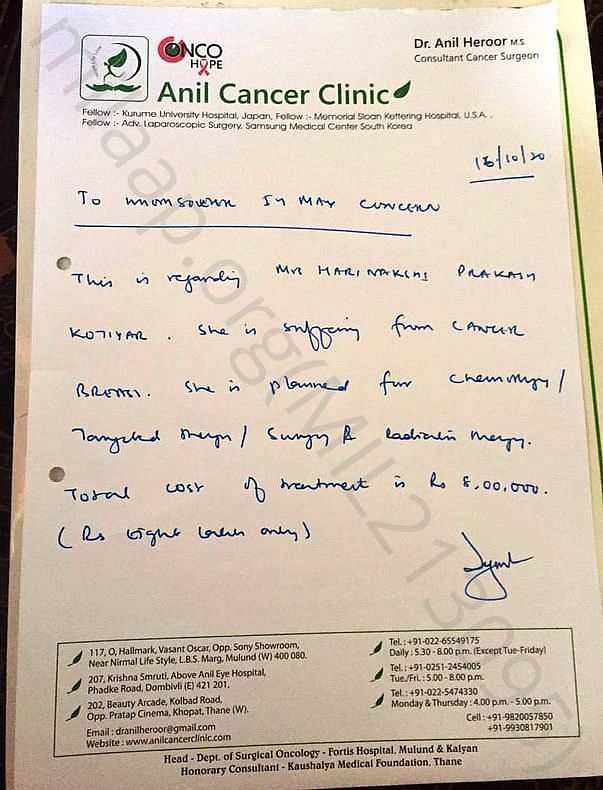 ONCO
HOPE
Dr. Anil Heroor M.S.
Consultant Cancer Surgeon
Anil Cancer Clinic
Fellow :- Kurume University Hospital, Japan, Fellow :- Memorial Sloan Kettering Hospital, U.S.A. ,
Fellow :- Adv. Laparoscopic Surgery, Samsung Medical Center South Korea
16/10/20
TO WHOMSOEVER IT MAY CONCERN
This is regarding Mrs HARINAKSHI PRAKASH
KOTIYAR . She is suffering from CANCER
BREAST. She is planned for Chemotherapy /
Targeted therapy / Surgery & Radiation therapy.
Total cost of treatment is Rs 8,00,000.
(Rs Eight lakhs only)
117, O, Hallmark, Vasant Oscar, Opp. Sony Showroom,
Near Nirmal Life Style, L.B.S. Marg, Mulund (W) 400 080.
207, Krishna Smruti, Above Anil Eye Hospital,
Phadke Road, Dombivli (E) 421 201.
202, Beauty Arcade, Kolbad Road,
Opp. Pratap Cinema, Khopat, Thane (W).
Email : dranilheroor@gmail.com
Website : www.anilcancerclinic.com
Tel. : +91-022-65549175
Daily : 5.30 - 8.00 p.m. (Except Tue-Friday)
Tel. : +91-0251-2454005
Tue./Fri. : 5.00 - 8.00 p.m.
Tel. : +91-022-5474330
Monday & Thursday : 4.00 p.m. - 5.00 p.m.
Cell : +91-9820057850
+91-9930817901
Head - Dept. of Surgical Oncology - Fortis Hospital, Mulund & Kalyan
Honorary Consultant - Kaushalya Medical Foundation, Thane
milaap.org(MIL213095)